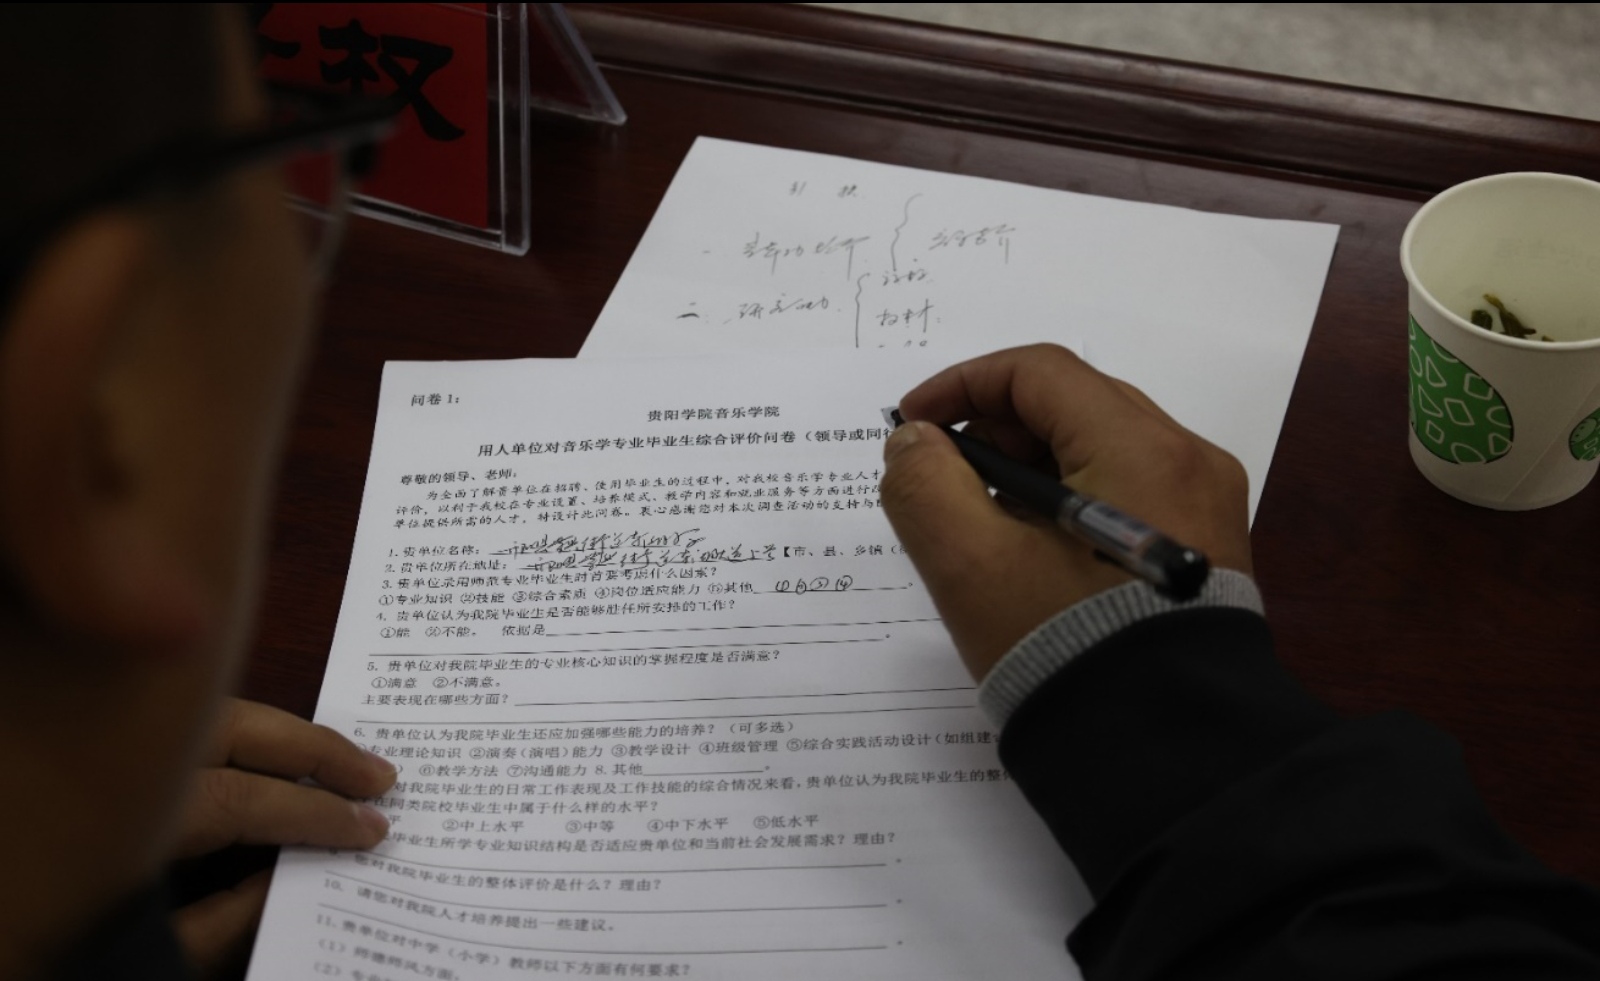 权
引
一
二
教材
问卷 1:
贵阳学院音乐学院
用人单位对音乐学专业毕业生综合评价问卷（领导或同行
尊敬的领导、老师:
为全面了解贵单位在招聘、使用毕业生的过程中，对我校音乐学专业人才
评价，以利于我校在专业设置、培养模式、教学内容和就业服务等方面进行改
单位提供所需的人才，特设计此问卷。衷心感谢您对本次调查活动的支持与
1. 贵单位名称:
2. 贵单位所在地址: 【市、县、乡镇（
3. 贵单位录用师范专业毕业生时首要考虑什么因素?
①专业知识 ②技能 ③综合素质 ④岗位适应能力 ⑤其他
4. 贵单位认为我院毕业生是否能够胜任所安排的工作?
①能 ②不能。 依据是
5. 贵单位对我院毕业生的专业核心知识的掌握程度是否满意?
①满意 ②不满意。
主要表现在哪些方面?
6. 贵单位认为我院毕业生还应加强哪些能力的培养? （可多选）
①专业理论知识 ②演奏（演唱）能力 ③教学设计 ④班级管理 ⑤综合实践活动设计（如组建
） ⑥教学方法 ⑦沟通能力 8. 其他 。
对我院毕业生的日常工作表现及工作技能的综合情况来看，贵单位认为我院毕业生的整体
在同类院校毕业生中属于什么样的水平?
平 ②中上水平 ③中等 ④中下水平 ⑤低水平
毕业生所学专业知识结构是否适应贵单位和当前社会发展需求? 理由?
您对我院毕业生的整体评价是什么? 理由?
10. 请您对我院人才培养提出一些建议。
11. 贵单位对中学（小学）教师以下方面有何要求?
（1）师德师风方面:
（2）专业